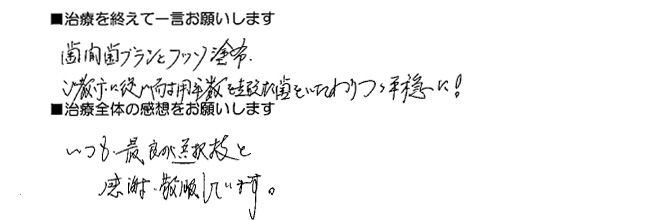 ■治療を終えて一言お願いします
歯間歯ブラシとフッソ塗布.
ご教示に従い耐用年数を 歯をいたわりつつ平穏に!
■治療全体の感想をお願いします
いつも、最良の選択技と
感謝、敬服しています。